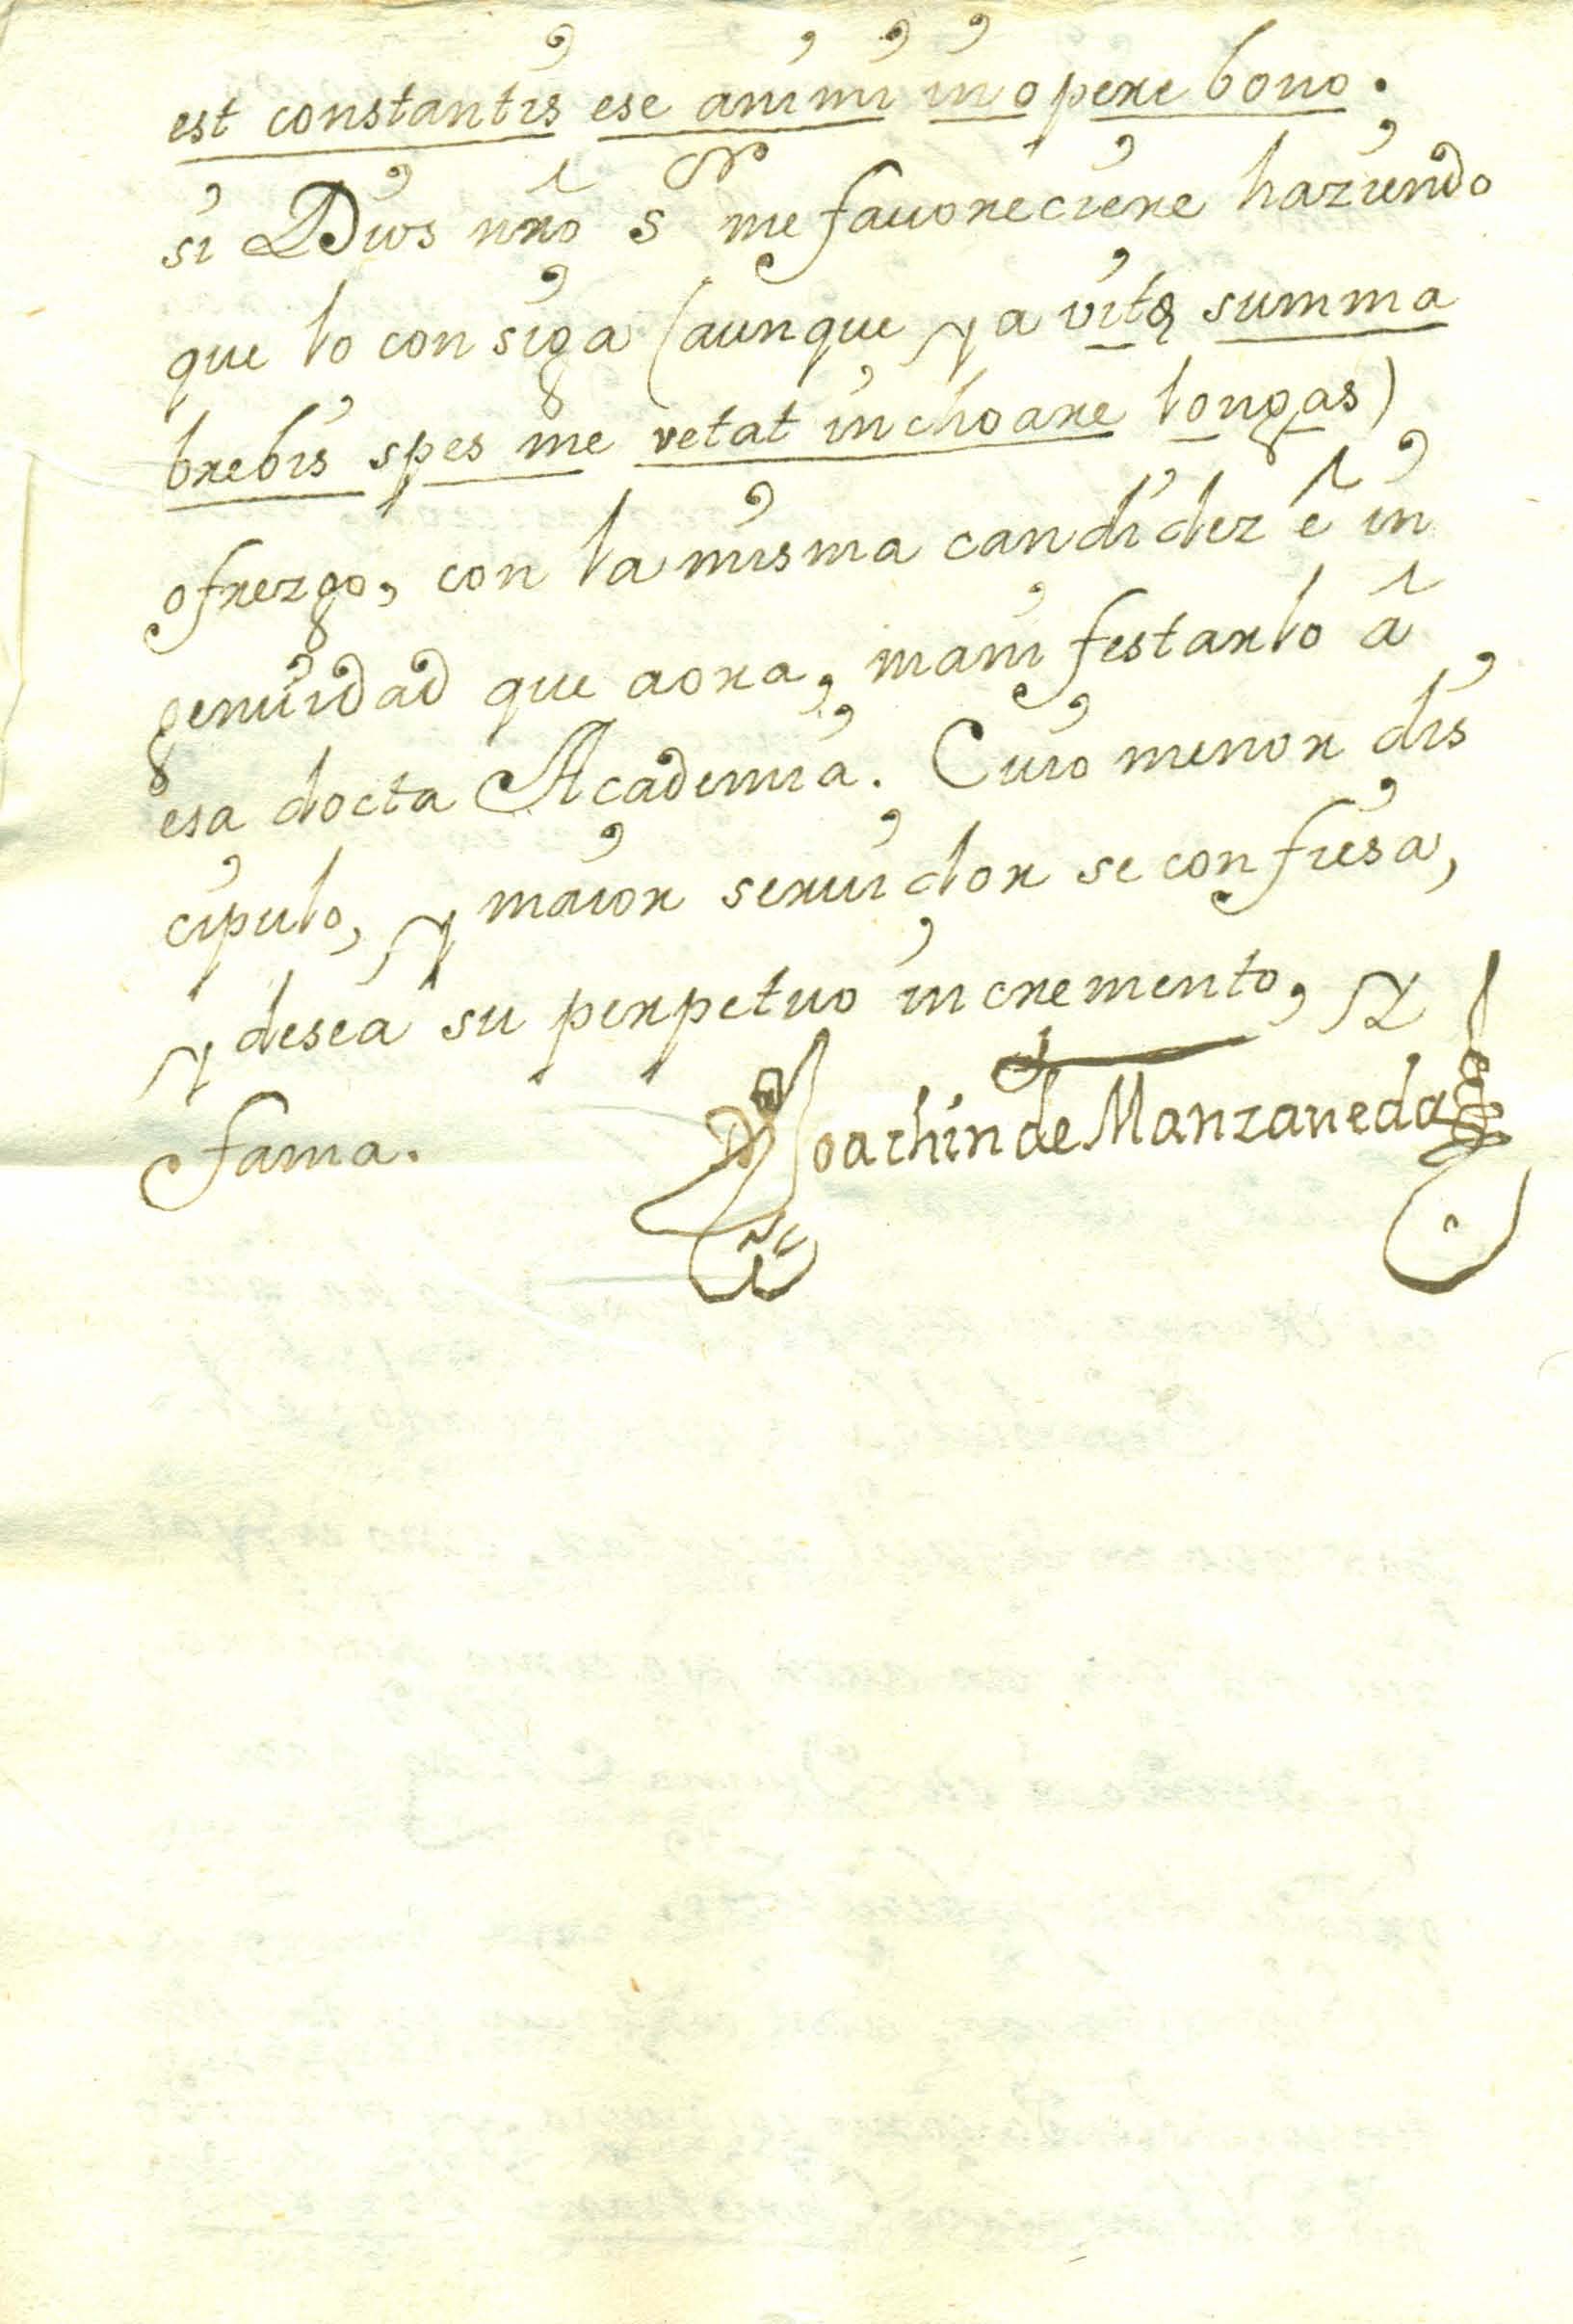 est constantis ese animi in opere bono.
si Dios nrô Sor me favoreciere haziendo
que lo consiga (aunque ya vitę summa
brebis spes me vetat inchoare longas)
ofrezgo, con la misma candidez ê in
genuidad que aora, manifestarlo â
esa docta Academia. Cuio menor dis
cipulo, y maior servidor se confiesa,
y desea su perpetuo incremento, y
fama.
Dn Joachin de Manzaneda